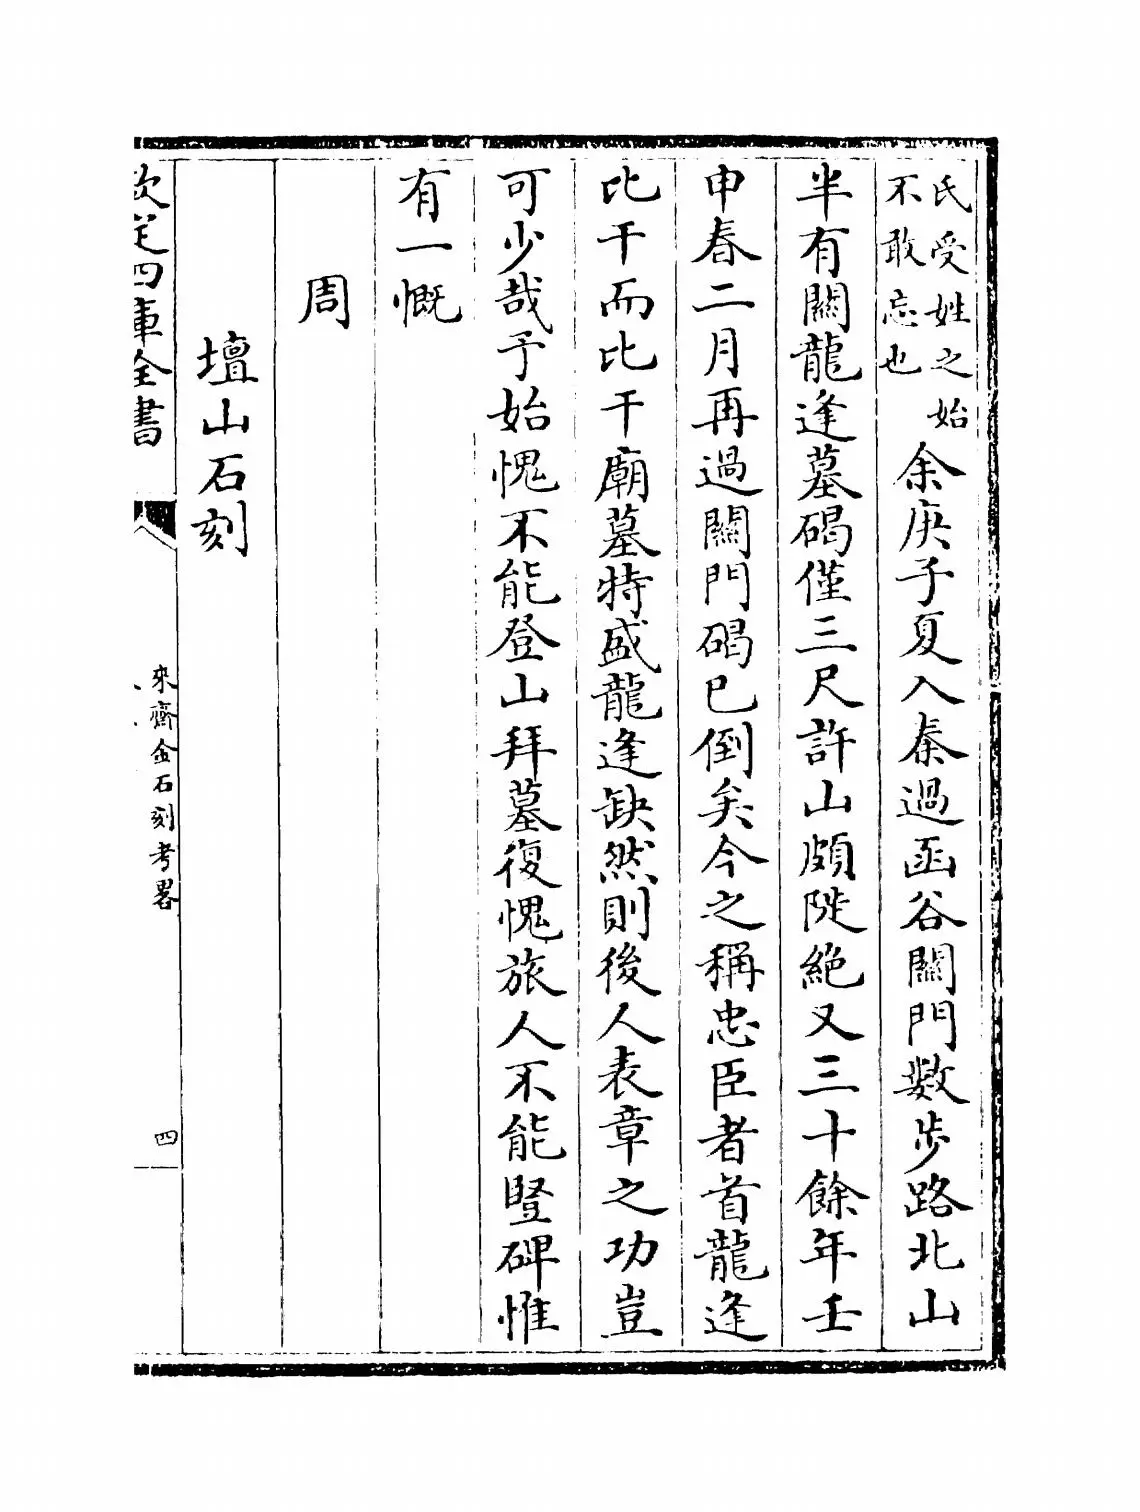 氏受姓之始
不敢忘也
余庚子夏入秦過函谷關門數步路北山
半有關龍逄墓碣僅三尺許山頗陡絶又三十餘年壬
申春二月再過關門碣已倒矣今之稱忠臣者首龍逄
比干而比干廟墓特盛龍逄缺然則後人表章之功豈
可少哉予始愧不能登山拜墓復愧旅人不能豎碑惟
有一慨
周
壇山石刻
欽定四庫全書
來齋金石刻考畧
四